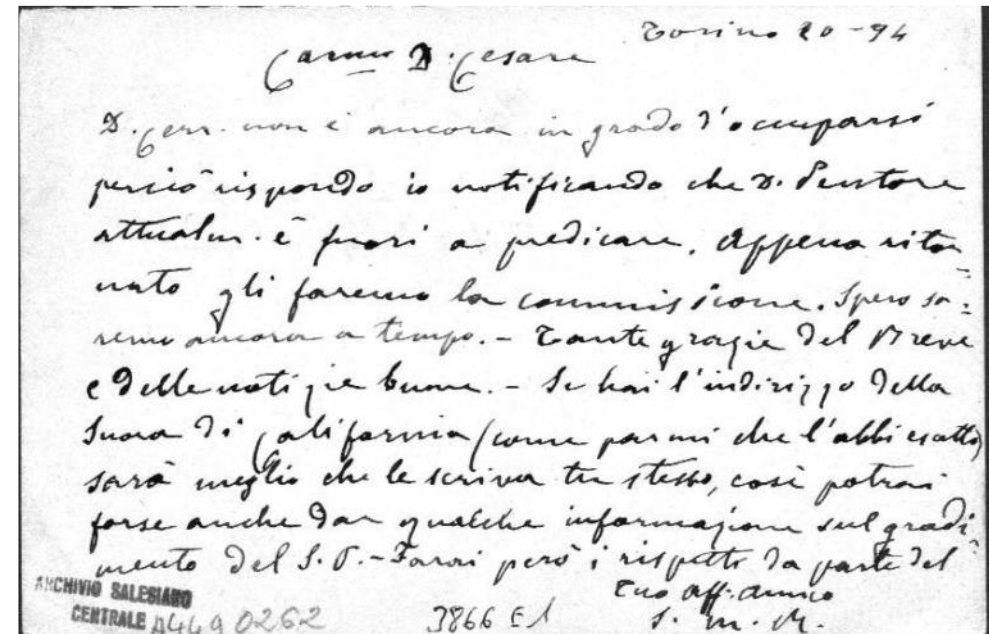 Torino 20-94
Carmo D. Cesare
D. Cerr. non è ancora in grado d'occuparsi
perciò rispondo io notificando che D.
attualm. è fuori a predicare. Appena ritor-
nato gli faremo la commissione. Spero sa-
remo ancora a tempo. - Tante grazie del Breve
e delle notizie buone. - Se hai l'indirizzo della
Suora di California (come parmi che l'abbi esatto)
sarà meglio che le scriva tu stesso, così potrai
forse anche dar qualche informazione sul gradi-
mento del S. P. - Farai però i rispetti da parte del
Tuo aff. amico
S. M. R.
ARCHIVIO SALESIANO
CENTRALE A449 0262
3866 E1